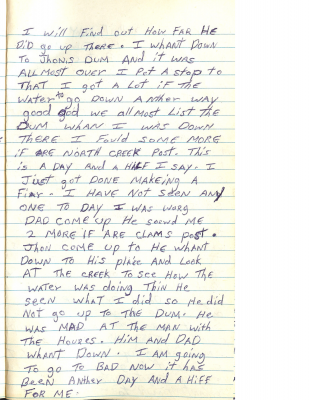 I will Find out How FAR HE
DiD go up THERE. I WHANT DOWN
TO JHONIS DUM AND iT WAS
ALLMOST OVER I POT A STOP TO
THAT I goT A LoT iF THE
WATER to go DOWN ANTHER WAY
good god we allmost List THE
DUM WHAN I WAS DOWN
THERE I Found SOME MORE
iF ARE NORTH CREEK POST. THIS
is A DAY AND A HIFF I SAY. I
JUST goT DONE MAKEING A
FiAR. I HAVE NoT SEEN ANy
ONE TO DAY I WAS WORG
DAD COME UP HE SOEWD ME
2 MORE IF ARE CLAMS POST.
JHON COME UP TO HE WHANT
DOWN TO His PLACE AND Look
AT THE CREEK TO SEE HOW THE
WATER WAS DOING THIN HE
SEEN WHAT I DID SO HE DID
NOT go UP TO THE DUM. HE
WAS MAD AT THE MAN WITH
THE HOUSES. HIM AND DAD
WHANT DOWN. I AM goiNg
To go To BAD NOW iT HAS
BEEN ANTHER DAY AND A HIFF
FOR ME.